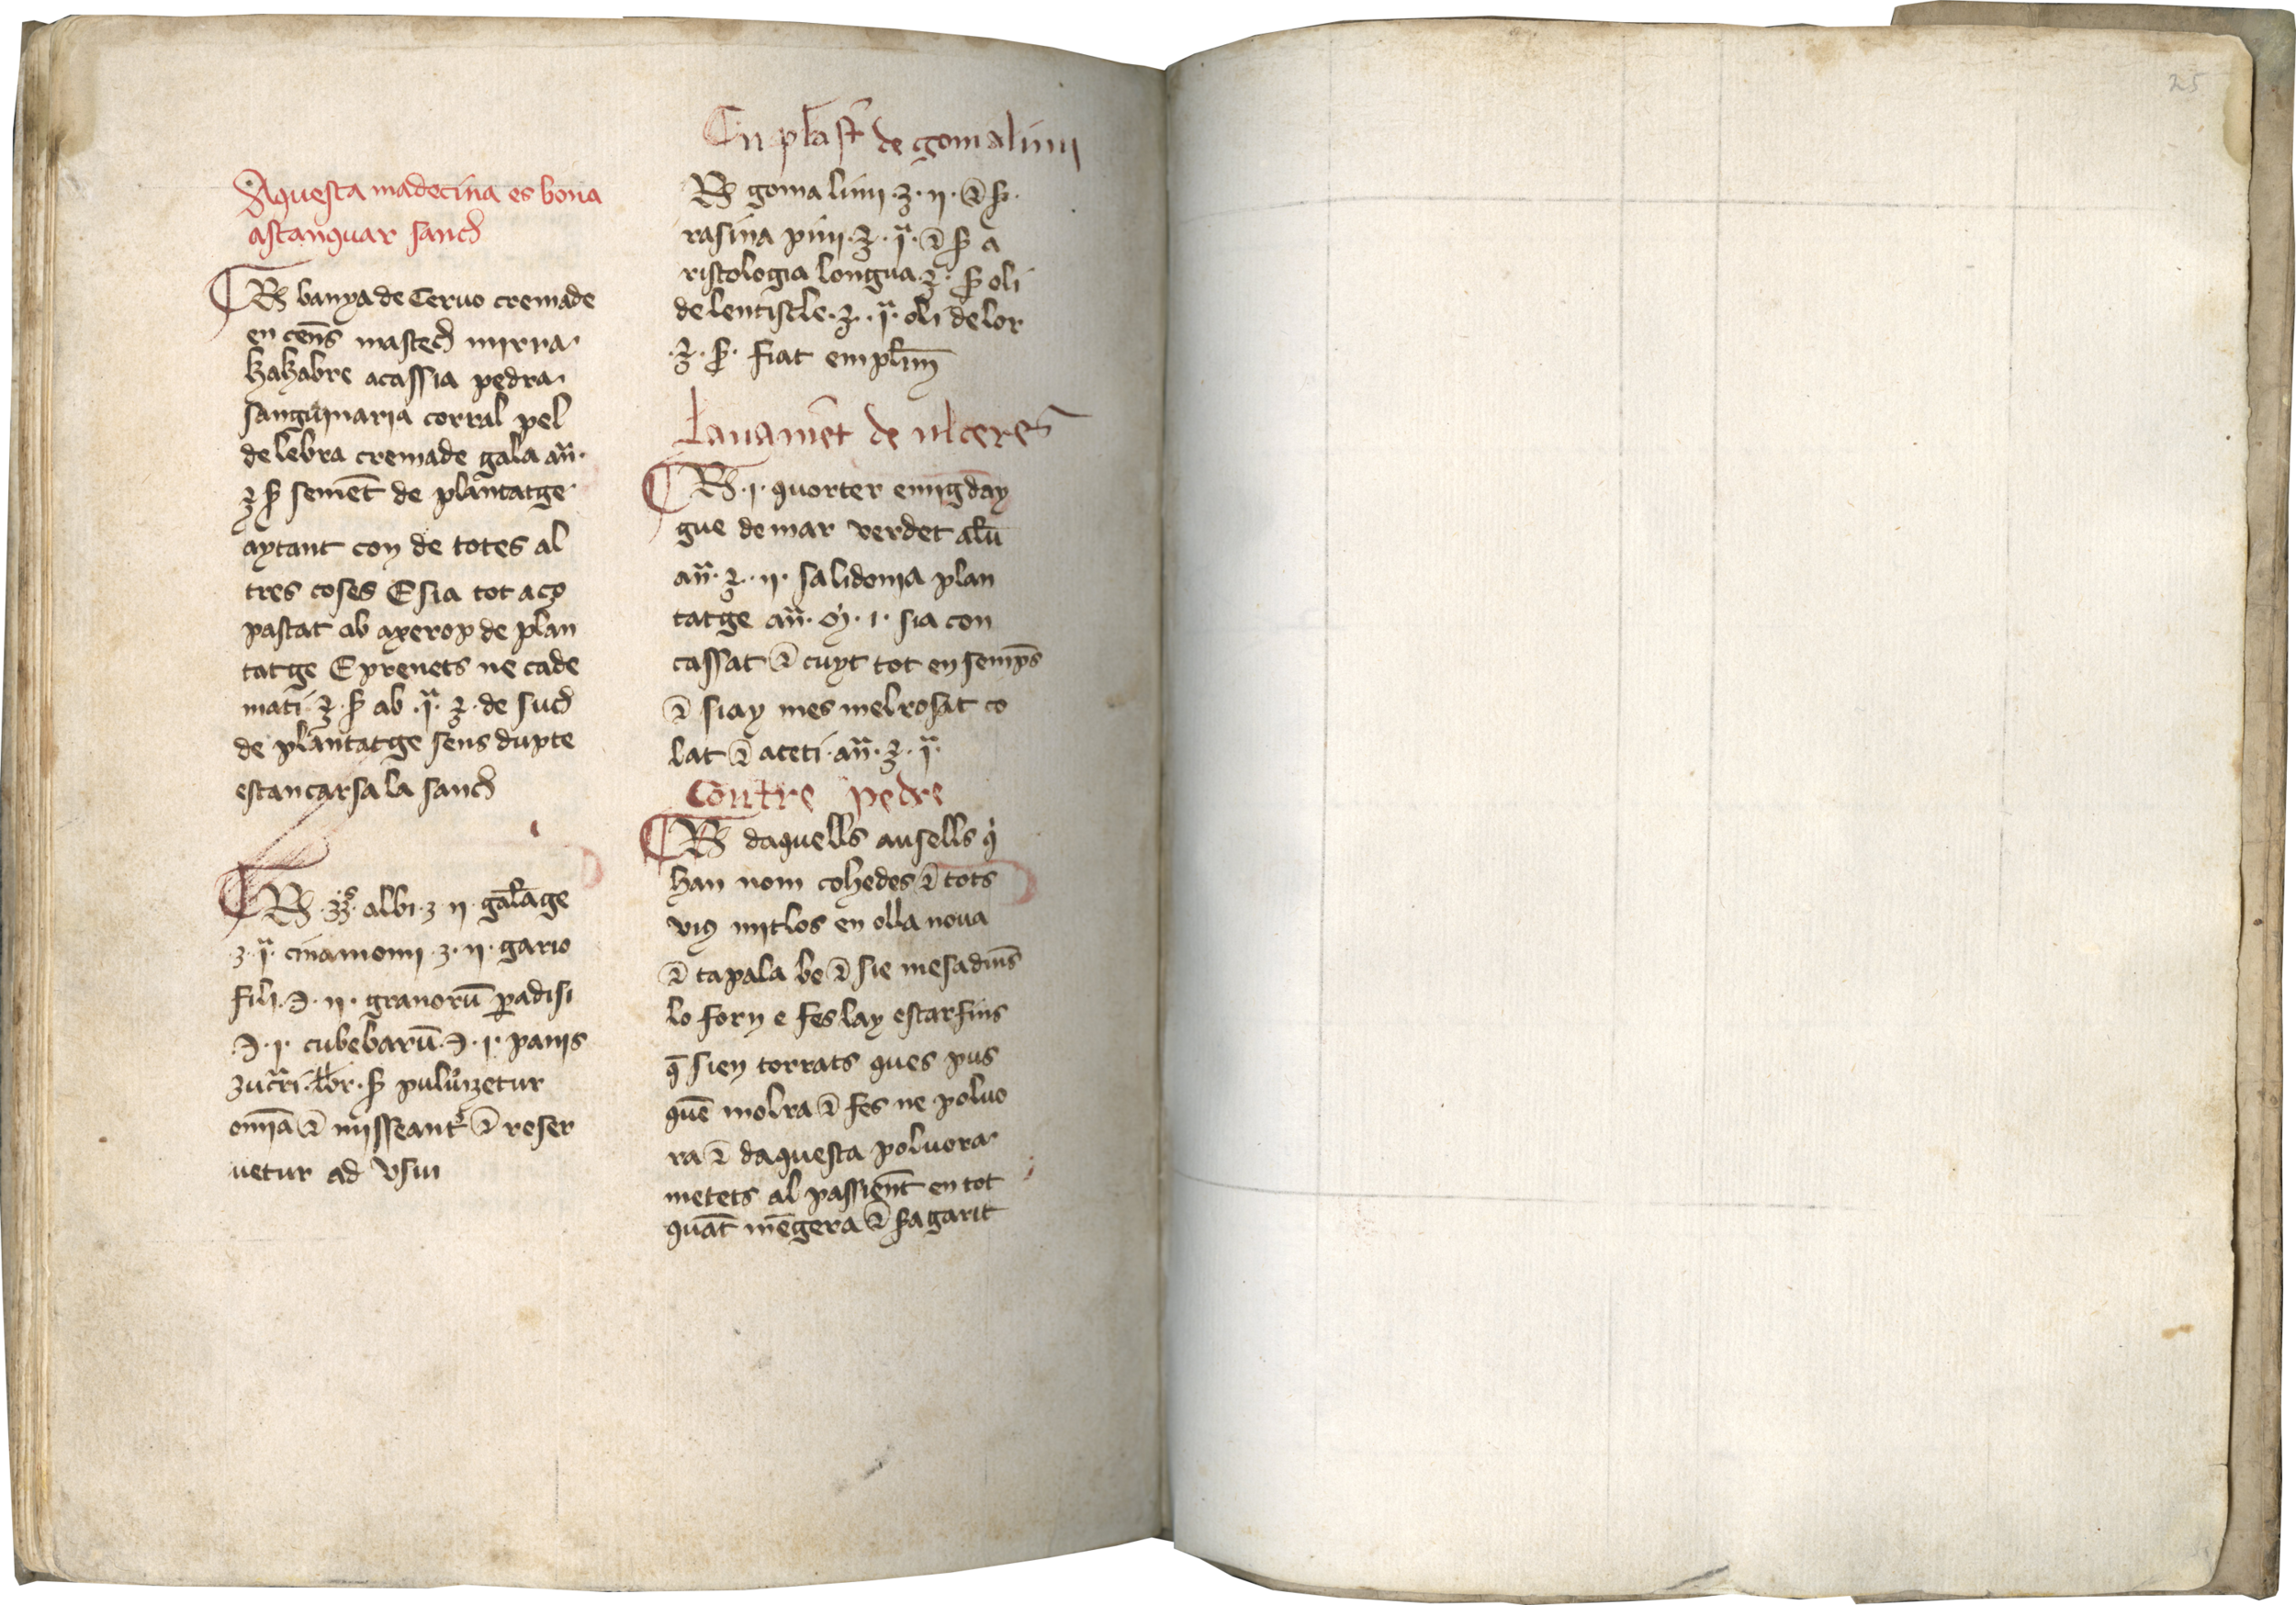 Aquesta madecina es bona
astanquar sanch
℞ banya de Ceruo cremade
en cens̄ mastech mirra
kakabre acassia pedra
sanguinaria corral pel
de lebra cremade gala an̄.
℥ ß semēt de plantatge
aytant con de totes al
tres coses E sia tot aço
pastat ab axerop de plan
tatge E prenets ne cade
mati ℥ ß ab .j. ℥ de such
de plantatge sens dupte
estancarsa la sanch
℞ albi ʒ ij gal̄age
ʒ j cinamomi ʒ ij gario
fili ℈ ij granorū p̄adisi
℈ j cubebarū ℈ j panis
zucri lbr ß puluizetur
om̄ia ⁊ misseantr ⁊ reser
uetur ad vsm
Enplastr̄ de goma limi
℞ goma limi ℥ ij ⁊ ß
rasina pini ℥ j ⁊ ß a
ristologia longua ℥ ß oli
de lentiscle ℥ j oli de lor
℥ ß fiat emplm̄
Lauamēt de ulceres
℞ j quorter e mig day
gue de mar verdet alū
an̄ ℥ ij salidonia plan
tatge an̄ m̊ j sia con
cassat ⁊ cuyt tot en semps̄
⁊ siay mes mel rosat co
lat ⁊ aceti an̄ ℥ j
Contre pedre
℞ daquells ausells q̇
han nom cohedes ⁊ tots
vius mit los en olla noua
⁊ tapala be ⁊ sie mesa dīns
lo forn e fes lay estar fins
q̄ sien torrats ques pus
quen̄ molra ⁊ fes ne poluo
ra ⁊ daquesta poluora
metets al passient̄ en tot
quāt mēgera ⁊ sagarit
25